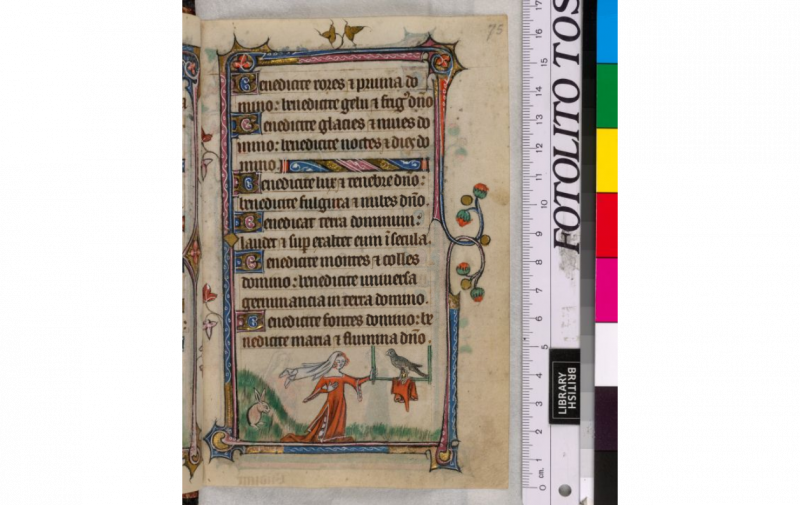 75
Benedicite rores ⁊ pruina do
mino: benedicite gelu ⁊ frigꝰ dño
Benedicite glacies ⁊ niues do
mino: benedicite noctes ⁊ dies do
mino.
Benedicite lux ⁊ tenebre dño:
benedicite fulgura ⁊ nubes dño.
Benedicat terra dominum:
laudet ⁊ sup exaltet eum ĩ secula.
Benedicite montes ⁊ colles
domino: benedicite uniuersa
germinancia in terra domino.
Benedicite fontes domino: be
nedicite maria ⁊ flumina dño.
FOTOLITO TOS
17
16
15
14
13
12
11
10
9
8
7
6
5
4
3
2
1
0 cm.
BRITISH
LIBRARY